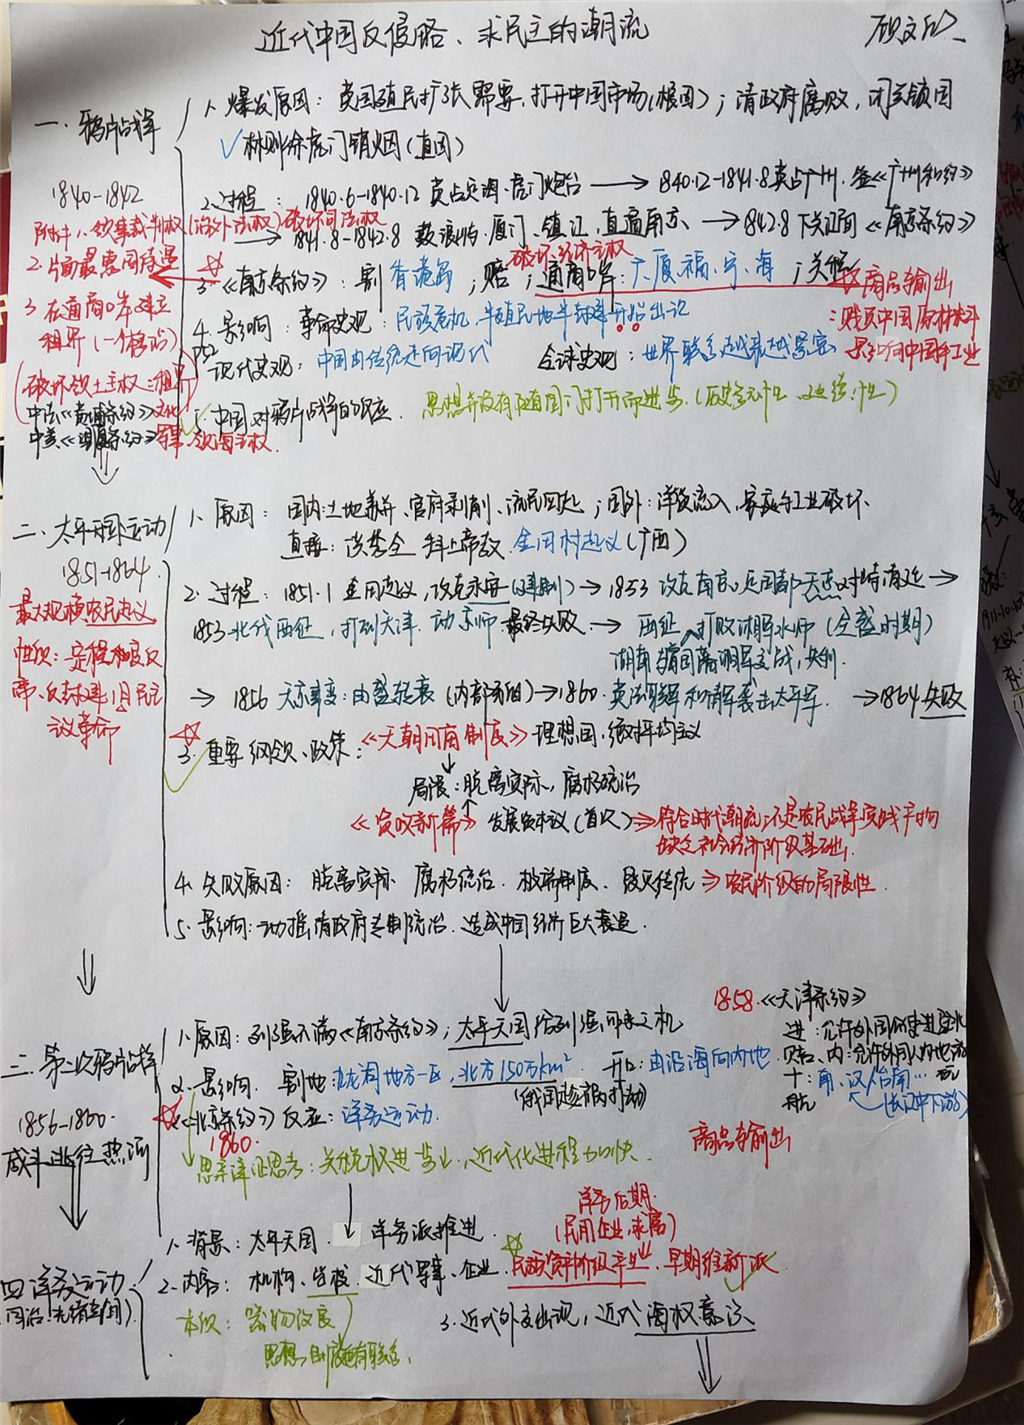 近代中国反侵略、求民主的潮流
一、鸦片战争
1840-1842
1. 爆发原因：英国殖民扩张需要,打开中国市场(根因)；清政府腐败,闭关锁国
✓林则徐虎门销烟(直因)
2.过程：1840.6-1840.12 英占定海、虎门炮台 → 1840.12-1841.8英占广州.签《广州和约》
→ 1841.8-1842.8 厦门、镇江,直逼南京、→ 1842.8 下关江面《南京条约》
附件1.领事裁判权(治外法权)破坏司法权
2.片面最惠国待遇
3.在通商口岸建立
租界(一个格局)
(破坏领土主权：租界)
中法《黄埔条约》文化
中美《望厦条约》军事、领海主权
破坏经济主权
3.《南京条约》：割香港岛；赔；通商口岸：广、厦、福、宁、海；关税
商品输出
：贱买中国原材料
影响中国手工业
4.影响：革命史观：民族危机,半殖民地半封建开始出现
现代史观：中国由传统走向现代 全球史观：世界联系越来越紧密
5.中国对鸦片战争的反应.思想并没有随国门打开而进步.
二、太平天国运动
1851-1864
最大规模农民起义
性质：一定程度反
帝、反封建旧民主
义革命
1.原因：国内：土地兼并、官府剥削、流民四起；国外：洋货流入、家庭手工业破坏.
直接：洪秀全 科上帝教.金田村起义(广西)
2.过程：1851.1 金田起义,攻克永安(建制)→1853 攻克南京,定国都天京,对峙清廷→
1853北伐西征,打到天津.动京师.最终失败.→ 西征、打败湘军水师(全盛时期)
→ 1856 天京事变：由盛转衰(内部)→1860.英法联军和清军袭击太平军 →1864失败
3.重要纲领、政策：《天朝田亩制度》理想国,绝对平均主义
局限：脱离实际,腐朽统治
《资政新篇》发展资本主义(首次)⇒符合时代潮流；不是农民战争实践产物
缺乏社会经济阶级基础.
4.失败原因：脱离实际 腐朽统治. ⇒农民阶级的局限性.
5.影响：动摇清政府专制统治.造成中国经济巨大衰退.
三、第二次鸦片战争
1856-1860
咸丰逃往热河
1.原因：列强不满《南京条约》；太平天国给列强可乘之机
2.影响.割地：九龙司地方一区,北方150万km² 开口：由沿海向内地
1858.《天津条约》
进：允许外国公使进驻北
内：允许外国人内地
十：南、汉、台南…
(长江中下游)
商品输出
《北京条约》反应：洋务运动.
1860.
近代化进程加快.
四、洋务运动
同治、光绪年间)
1.背景：太平天国. 洋务派推进
洋务后期
(民用企业,求富)
2.内容：机构、学校、近代军事、企业.民族资产阶级产生、早期维新派
本质：器物改良
思想、制度也有联系.
3.近代外交出现,近代海权意识